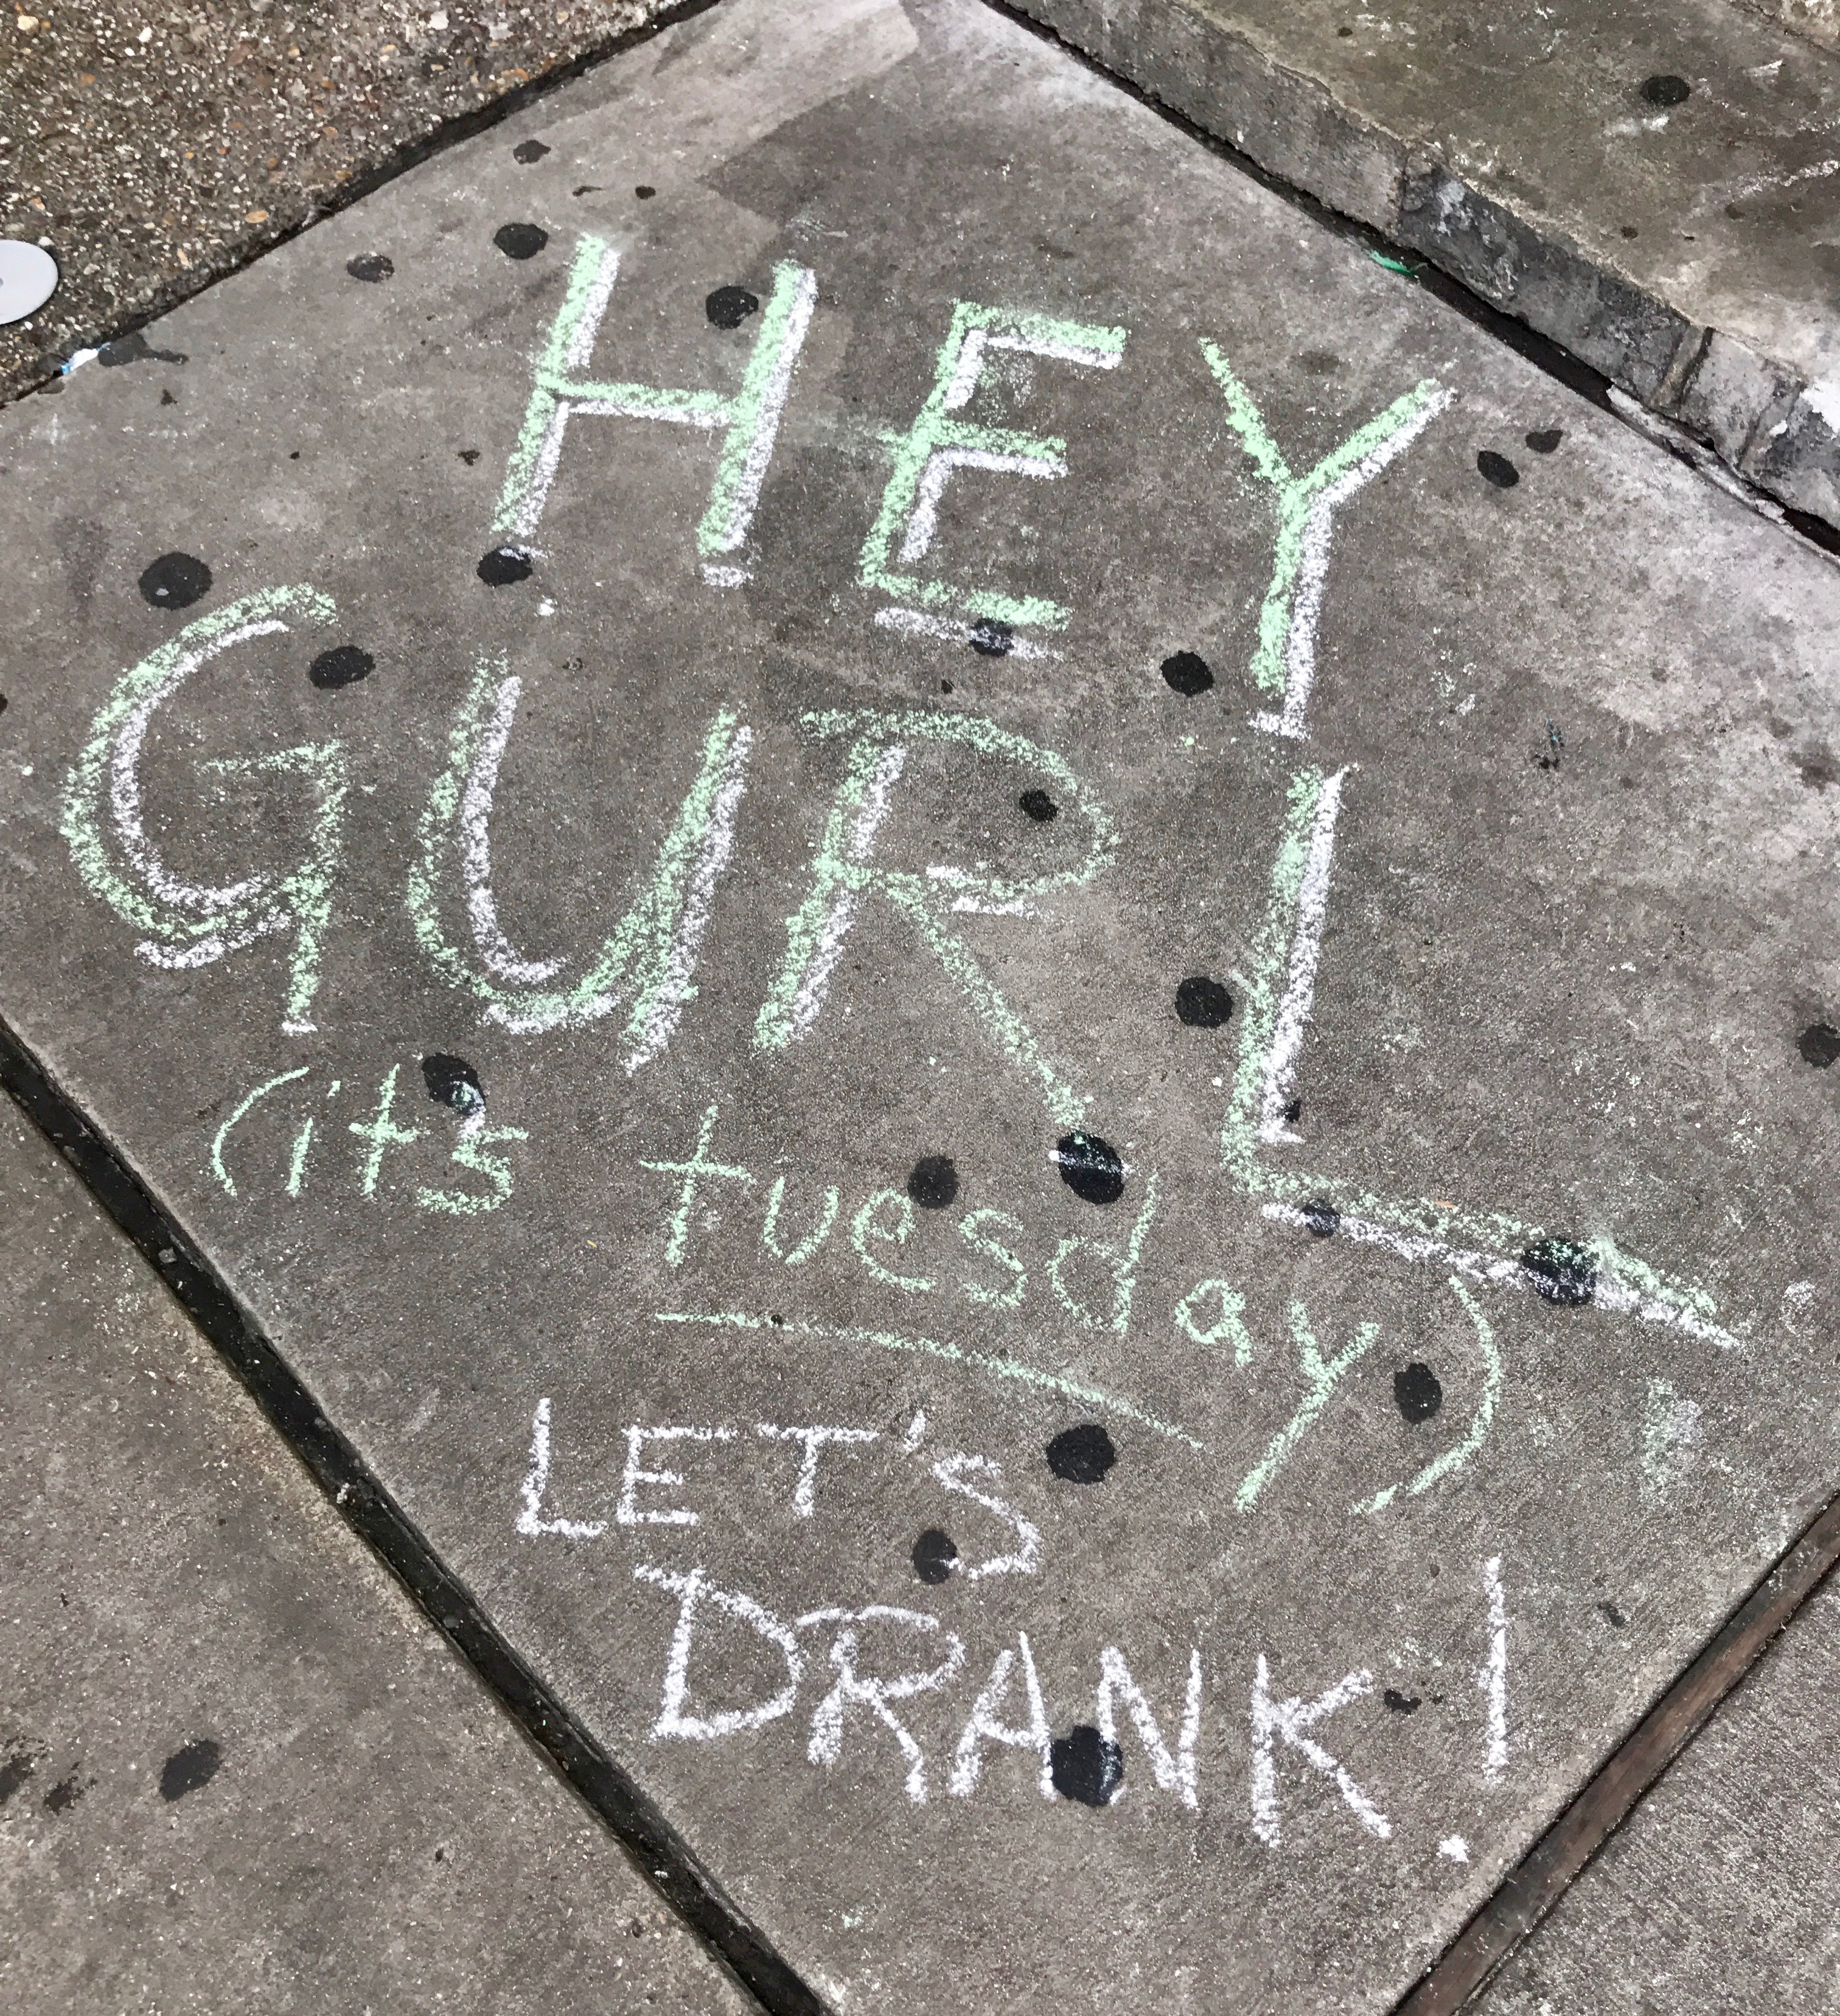 HEY
GURL
(its tuesday)
LET'S
DRANK!